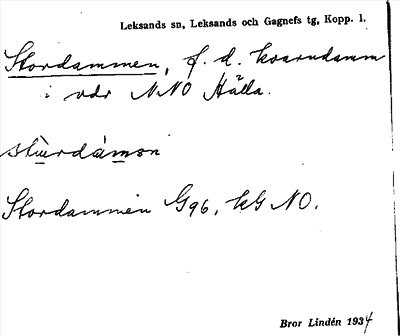 Leksands sn, Leksands och Gagnefs tg, Kopp. l.
Stordammen, f. d. kvarndamm
i vdr NNO Hälla.
stùrdámǝn
Stordammen G96, kG NO.
Bror Lindén 1934